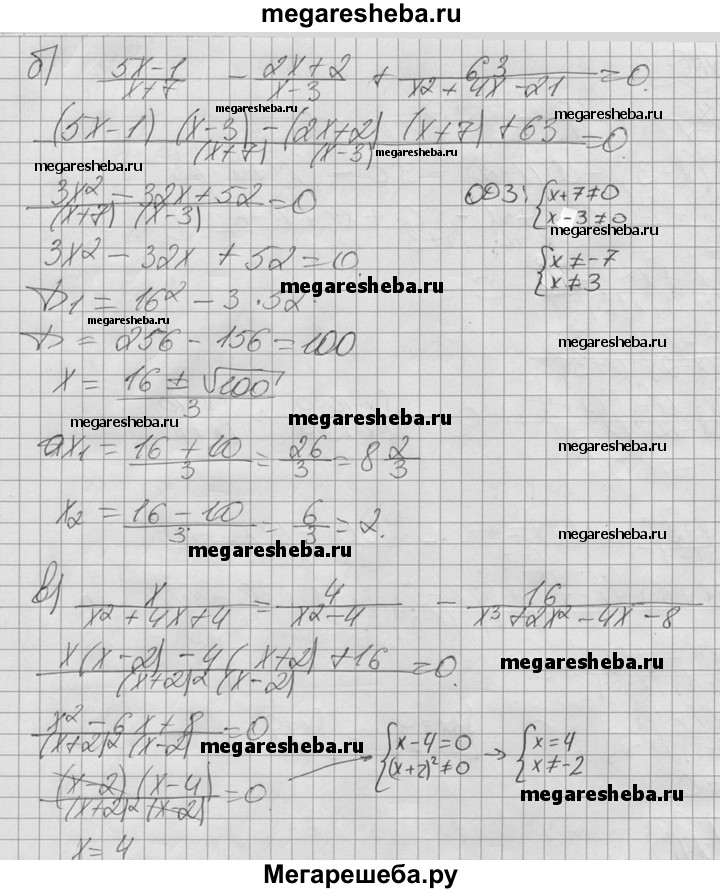 megaresheba.ru
б) (5x-1)/(x+7) - (2x+2)/(x-3) + 63/(x2 + 4x - 21) = 0.
megaresheba.ru megaresheba.ru
((5x-1) (x-3) - (2x+2) (x+7) + 63)/((x+7) (x-3)) = 0
megaresheba.ru megaresheba.ru
(3x² - 32x + 52)/((x+7) (x-3)) = 0 ОДЗ: {x+7≠0
{x-3≠0
megaresheba.ru
3x² - 32x + 52 = 0. {x≠-7
{x≠3
megaresheba.ru
D1 = 16² - 3·52.
megaresheba.ru
D = 256 - 156 = 100 megaresheba.ru
x = (16 ± √100)/3
megaresheba.ru megaresheba.ru
x1 = (16 + 10)/3 = 26/3 = 8 2/3 megaresheba.ru
x2 = (16 - 10)/3 = 6/3 = 2. megaresheba.ru
megaresheba.ru
в) x/(x² + 4x + 4) = 4/(x² - 4) - 16/(x³ + 2x² - 4x - 8)
(x(x-2) - 4(x+2) + 16)/((x+2)² (x-2)) = 0. megaresheba.ru
(x² - 6x + 8)/((x+2)² (x-2)) = 0 megaresheba.ru
{x-4=0 → {x=4
{(x+2)²≠0 {x≠-2
((x-2) (x-4))/((x+2)² (x-2)) = 0 megaresheba.ru
x = 4
Мегарешеба.ру